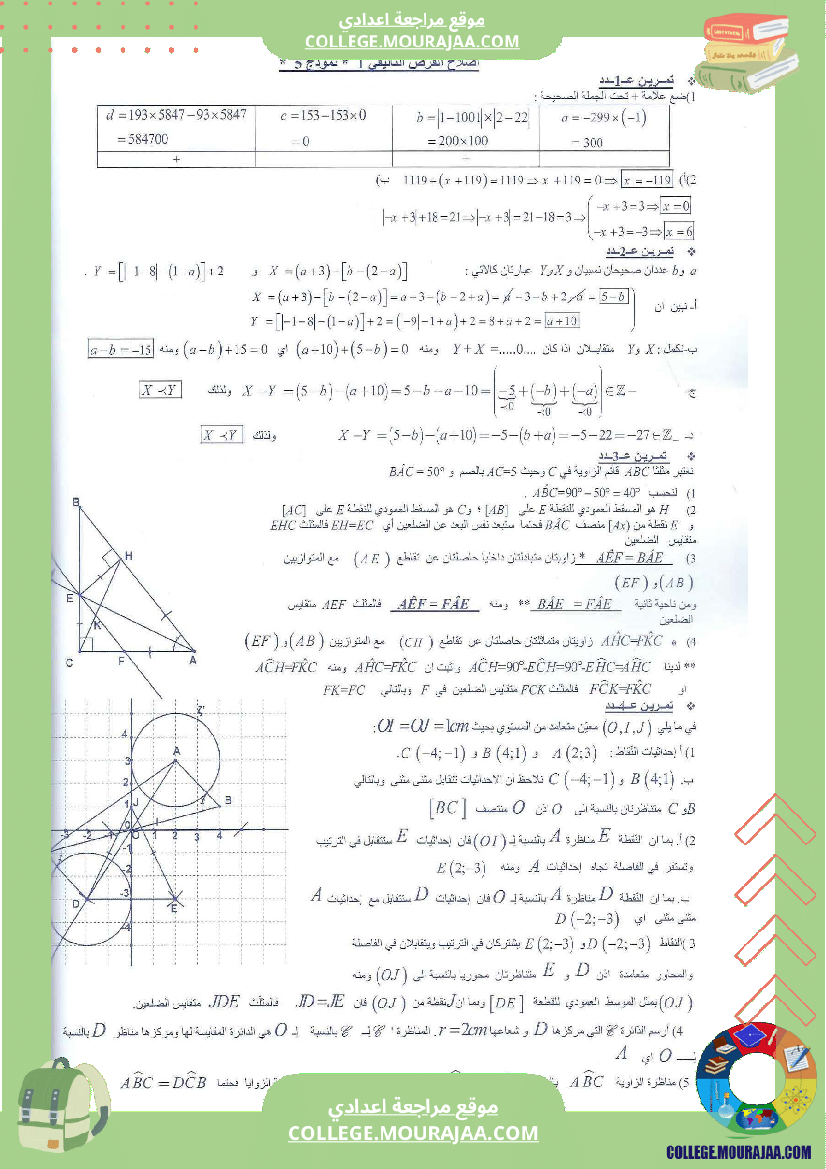 موقع مراجعة اعدادي
COLLEGE.MOURAJAA.COM
اصلاح الفرض التأليفي 1 * نموذج 5 *
❖ تمــرين عـ1ـدد
1)ضع علامة + تحت الجملة الصحيحة :
d = 193×5847−93×5847 c = 153−153×0 b = |1−1001|×|2−22| a = −299×(−1)
= 584700 = 0 = 200×100 = 300
+
2)أ) 1119−(x+119)=1119⇒x+119=0⇒ x = −119 ب)
|−x+3|+18=21⇒|−x+3|=21−18=3⇒ −x+3=3⇒ x=0
−x+3=−3⇒ x=6
❖ تمــرين عـ2ـدد
a و b عددان صحيحان نسبيان و X و Y عبارتان كالآتي : X=(a+3)−[b−(2−a)] و Y=[|−1−8|−(1−a)]+2 .
أ- نبين ان X=(a+3)−[b−(2−a)]=a+3−(b−2+a)=a+3−b+2−a= 5−b
Y=[|−1−8|−(1−a)]+2=(−9|−1+a)+2=8+a+2= a+10
ب-نكمل : X و Y متقابـلان اذا كان ....0....=Y+X ومنه (a+10)+(5−b)=0 اي (a−b)+15=0 ومنه a−b=−15
ج- X−Y=(5−b)−(a+10)=5−b−a−10=(−5+(−b)+(−a))∈ℤ− ولذلك X≺Y
≺0 ≺0 ≺0
د- X−Y=(5−b)−(a+10)=−5−(b+a)=−5−22=−27∈ℤ_ ولذلك X≺Y
❖ تمــرين عـ3ـدد
نعتبر مثلثا ABC قائم الزاوية في C وحيث AC=5 بالصم و BÂC = 50°
1) لنحسب ABC=90°−50° = 40° .
2) H هو المسقط العمودي للنقطة E على [AB] ؛ و C هو المسقط العمودي للنقطة E على [AC]
و E نقطة من [Ax) منصف BÂC فحتما ستبعد نفس البعد عن الضلعين أي EH=EC فالمثلث EHC
متقايس الضلعين
3) AÊF = BÂE * زاويتان متبادلتان داخليا حاصلتان عن تقاطع (AE) مع المتوازيين
(AB) و (EF)
ومن ناحية ثانية BÂE = FÂE ** ومنه AÊF = FÂE فالمثلث AEF متقايس
الضلعين
4) * AĤC=FK̂C زاويتان متماثلتان حاصلتان عن تقاطع (CH) مع المتوازيين (AB) و (EF)
** لدينا AĈH=90°-EĈH=90°-EĤC=AĤC وثبت ان AĤC=FK̂C ومنه AĈH=FK̂C
او FĈK=FK̂C فالمثلث FCK متقايس الضلعين في F وبالتالي FK=FC
B
H
E
K
C F A
❖ تمــرين عـ4ـدد
في ما يلي (O,I,J) معيّن متعامد من المستوي بحيث OI=OJ=1cm:
1) أ إحداثيات النّقاط : A(2;3) و B(4;1) و C(−4;−1).
ب. B(4;1) و C(−4;−1) نلاحظ ان الاحداثيات تتقابل مثنى مثنى وبالتالي
B و C متناظرتان بالنسبة الى O اذن O منتصف [BC]
2) أ. بما ان النّقطة E مناظرة A بالنسبة لِـ (OI) فان إحداثيات E ستتقابل في الترتيب
وتستقر في الفاصلة تجاه إحداثيات A ومنه E(2;−3)
ب. بما ان النّقطة D مناظرة A بالنسبة لِـ O فان إحداثيات D ستتقابل مع إحداثيات A
مثنى مثنى اي D(−2;−3)
3 )النقاط D(−2;−3) و E(2;−3) يشتركان في الترتيب ويتقابلان في الفاصلة
والمحاور متعامدة اذن D و E متناظرتان محوريا بالنسبة الى (OJ) ومنه
(OJ) يمثل الموسط العمودي للقطعة [DE] وبما ان J نقطة من (OJ) فان JD=JE. فالمثلّث JDE متقايس الضلعين.
4) أرسم الدّائرة 𝒞 التي مركزها D و شعاعها r=2cm. المناظرة '𝒞 لِـ 𝒞 بالنسبة لِـ O هي الدائرة المقايسة لها ومركزها مناظر D بالنسبة
لِــ O اي A
5) مناظرة الزاوية ABC الزوايا فحتما ABC = DCB
موقع مراجعة اعدادي
COLLEGE.MOURAJAA.COM
COLLEGE.MOURAJAA.COM